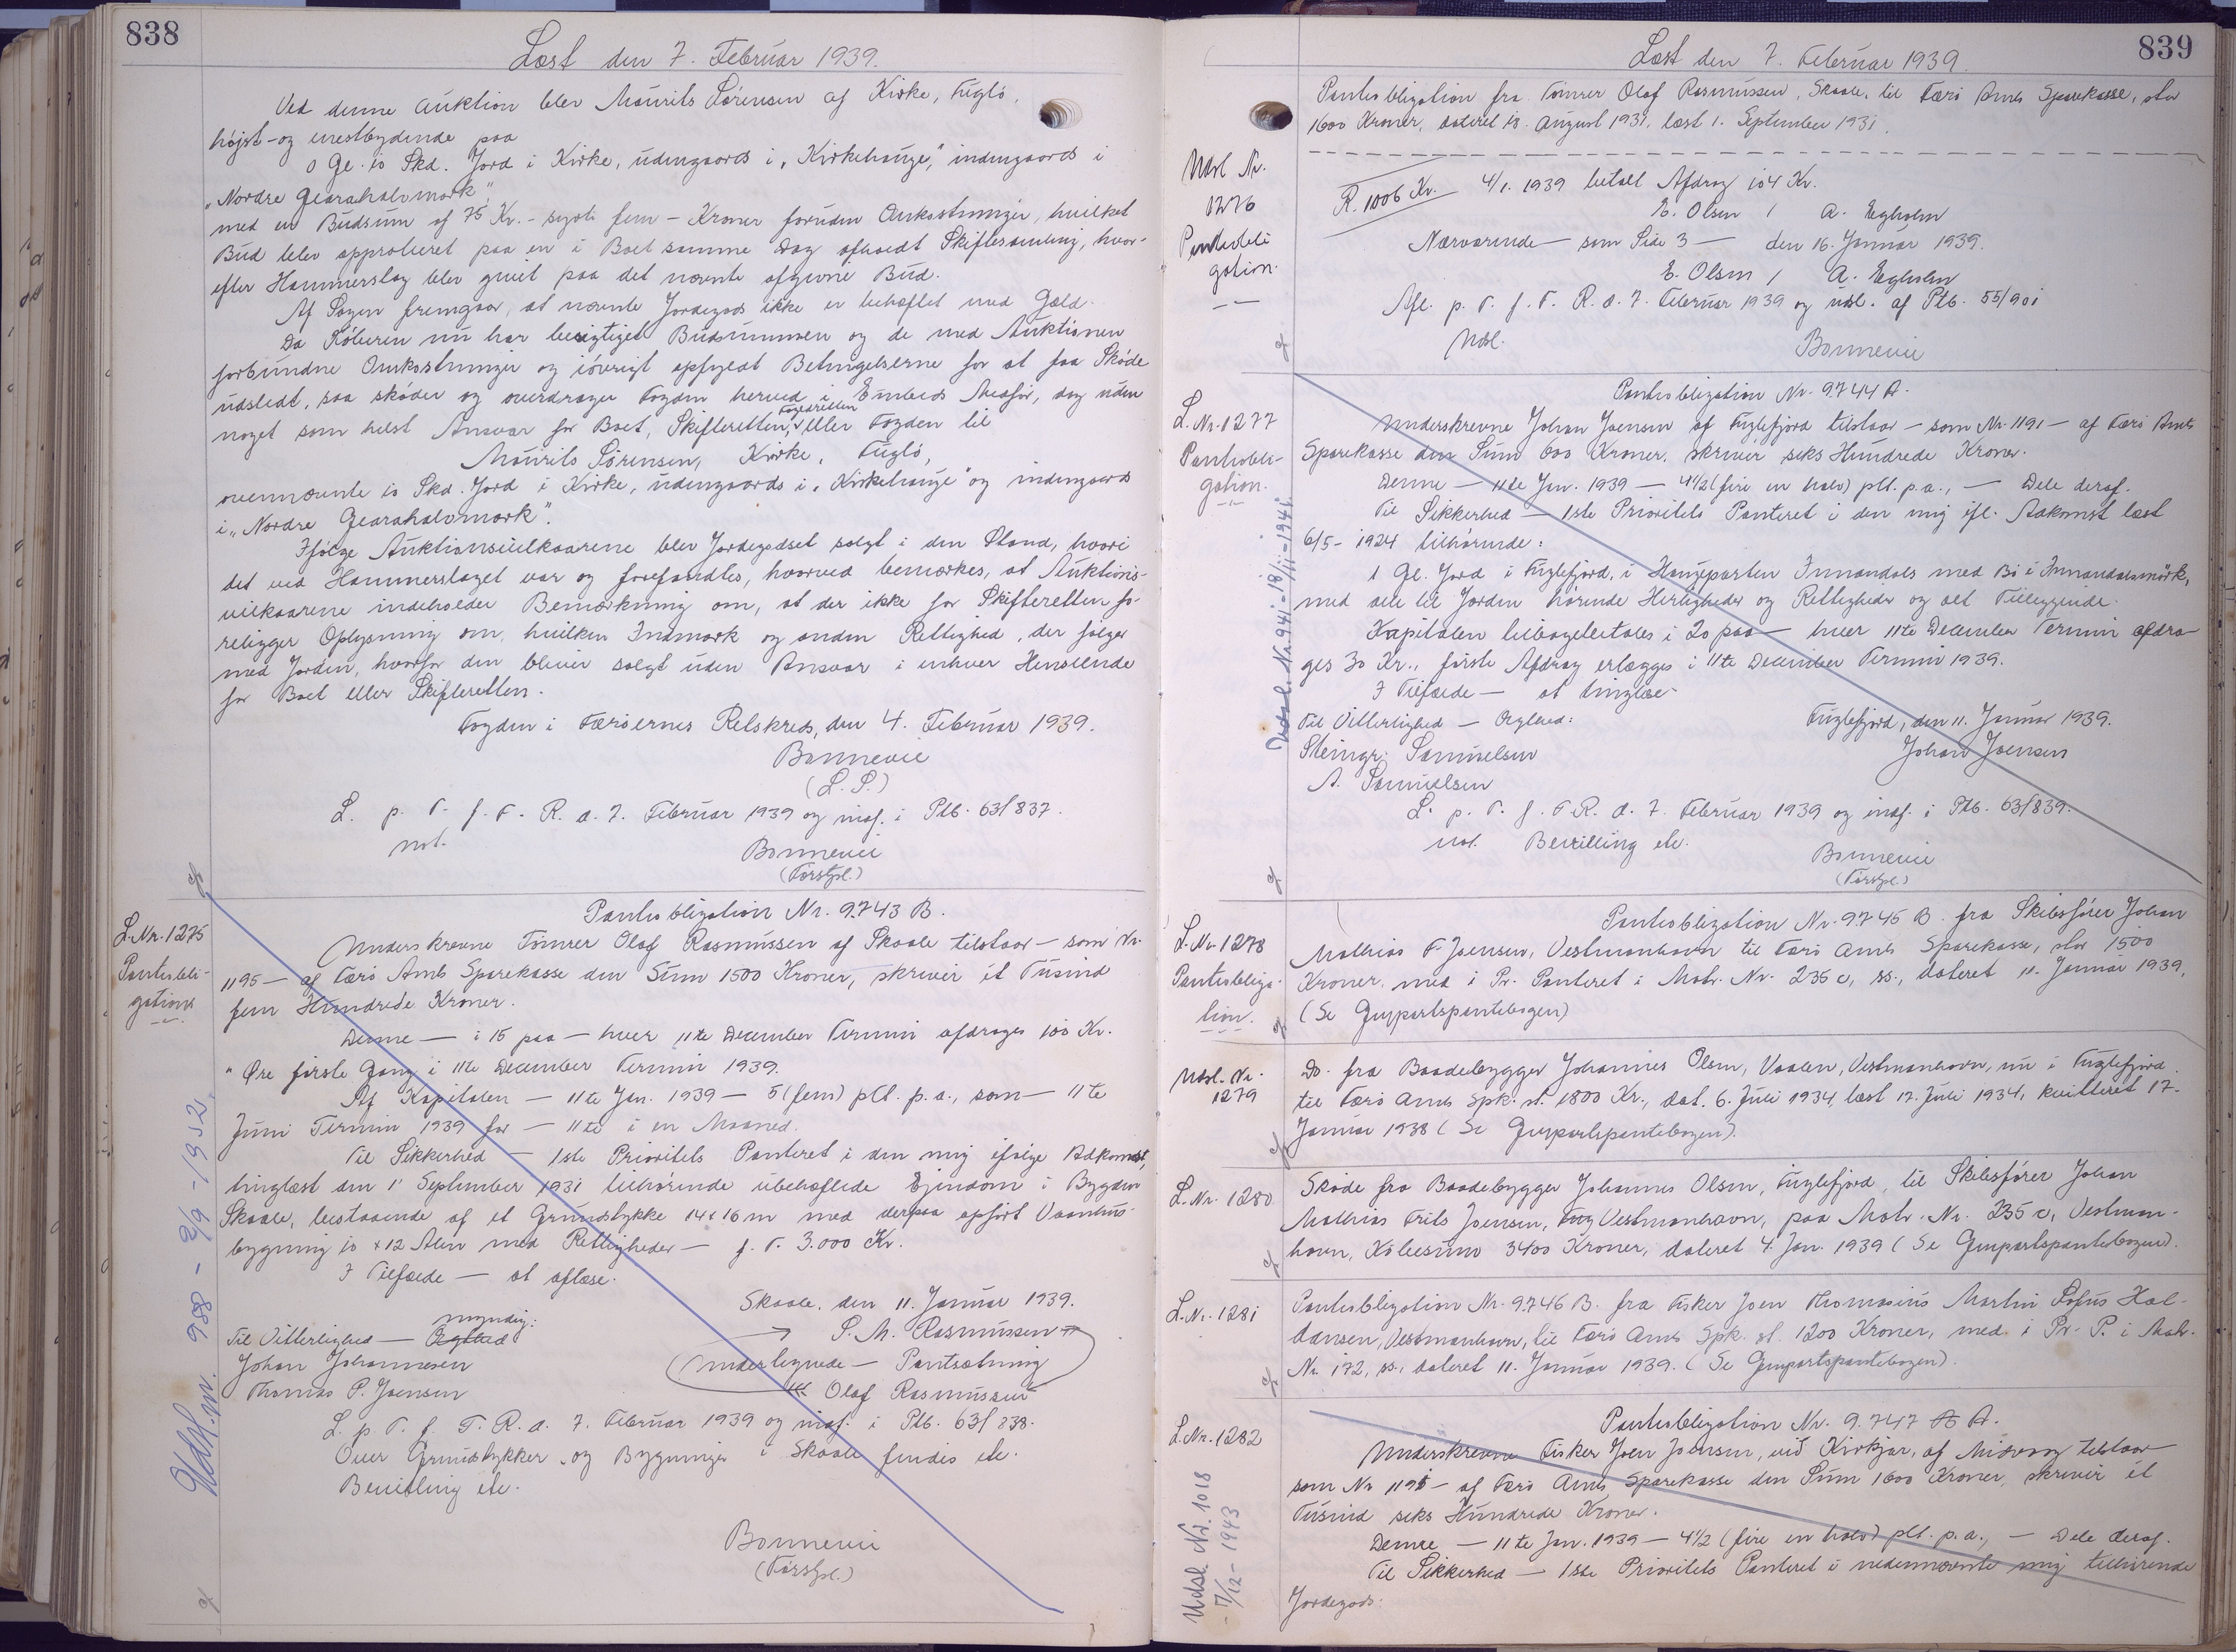 838
Læst den 7. Februar 1939.
Ved denne Auktion blev Mourits Sörensen af Kirke, Fuglö,
højst- og enestbydende paa
0 Gl. 10 Skd. Jord i Kirke, udengaards i "Kirkehauge", indengaards i
"Nordre Gearahalvmork"
med en Budsum af 75 Kr. - syvti fem - Kroner foruden Omkostninger, hvilket
Bud blev approberet paa en i Boet samme Dag afholdt Skiftesamling, hvor-
efter Hammerslag blev givet paa det nævnte afgivne Bud.
Af Sagen fremgaar, at nævnte Jordegods ikke er behæftet med Gæld.
Da Köberen nu har berigtiget Budsummen og de med Auktionen
forbundne Omkostninger og iövrigt opfyldt Betingelserne for at faa Sköde
udstedt, saa sköder og overdrager Fogden herved i Embeds Medför, dog uden
noget som helst Ansvar for Boet, Skifteretten, Fogedretten eller Fogden til
Mourits Sörensen, Kirke, Fuglö,
ovennævnte 10 Skd. Jord i Kirke, udengaards i "Kirkehauge" og indengaards
i "Nordre Gearahalvmork".
Ifölge Auktionsvilkaarene blev Jordegodset solgt i den Stand, hvori
det ved Hammerslaget var og forefandtes, hvorved bemærkes, at Auktions-
vilkaarene indeholder Bemærkning om, at der ikke for Skifteretten fo-
religger Oplysning om, hvilken Indmark og anden Rettighed, der fölger
med Jorden, hvorfor den bliver solgt uden Ansvar i enhver Henseende
for Boet eller Skifteretten.
Fogden i Færöernes Retskreds, den 4. Februar 1939.
Bonnevie
(L. S.)
L. p. T. f. F. R. d. 7. Februar 1939 og indf. i Ptb. 63/837.
not.
Bonnevie
(Forstpl.)
L. Nr. 1275
Pantobli-
gation
Pantobligation Nr. 9.743 B.
Underskrevne Tömrer Olaf Rasmussen af Skaale tilstaar - som Nr.
1195 - af Færö Amts Sparekasse den Sum 1500 Kroner, skriver ét Tusind
fem Hundrede Kroner.
Denne - i 15 paa - hver 11te December Termin afdrages 100 Kr.
" Øre förste Gang i 11te December Termin 1939.
Af Kapitalen - 11te Jan. 1939 - 5 (fem) pCt. p.a., som - 11te
Juni Termin 1939 for - 11te i en Maaned.
Til Sikkerhed - 1ste Prioritets Panteret i den mig ifölge Adkomst,
tinglæst den 1' September 1931 tilhörende ubehæftede Ejendom i Bygden
Skaale, bestaaende af et Grundstykke 14 x 16 m med derpaa opfört Vaanhus-
bygning 10 x 12 Alen med Rettigheder - f. T. 3.000 Kr.
I Tilfælde - at aflæse.
Skaale, den 11. Januar 1939.
myndig:
Til Vitterlighed - Ægthed
S. M. Rasmussen
Johan Johannesen
Undertegnede - Pantsætning
Thomas P. Joensen
Olaf Rasmussen
L. p. T. f. F. R. d. 7. Februar 1939 og indf. i Ptb. 63/838.
Over Grundstykker og Bygninger i Skaale findes etc.
Bevilling etc.
Bonnevie
(Forstpl.)
Udsl. Nr. 988 - 2/9 - 1952.
839
Læst den 7. Februar 1939.
Pantobligation fra Tömrer Olaf Rasmussen, Skaale, til Færö Amts Sparekasse, stor
1600 Kroner, dateret 13. August 1931, læst 1. September 1931.
Udsl. Nr.
1276
Pantobli
gation.
R. 1006 Kr. 4/1. 1939 betalt Afdrag 104 Kr.
E. Olsen / A. Egholm
Nærværende - som Side 3 - den 16. Januar 1939.
E. Olsen / A. Egholm
Afl. p. T. f. F. R. d. 7. Februar 1939 og udsl. af Ptb. 55/901
Udsl.
Bonnevie
L. Nr. 1277
Pantobli-
gation.
Udsl. Nr. 941 - 18/11 - 1941.
Pantobligation Nr. 9.744 A.
Underskrevne Johan Joensen af Fuglefjord tilstaar - som Nr. 1191 - af Færö Amts
Sparekasse den Sum 600 Kroner, skriver seks Hundrede Kroner.
Denne - 11te Jan. 1939 - 4 1/2 (fire en halv) pCt. p.a., - Dele deraf.
Til Sikkerhed - 1ste Prioritets Panteret i den mig ifl. Adkomst læst
6/5 - 1924 tilhörende:
1 Gl. Jord i Fuglefjord, i Haugeparten Innandals med Bö i Innandalsmörk,
med alle til Jorden hörende Herligheder og Rettigheder og alt Tilliggende.
Kapitalen tilbagebetales i 20 paa - hver 11te December Termin afdra-
ges 30 Kr., förste Afdrag erlægges i 11te December Termin 1939.
I Tilfælde - at tinglæse
Til Vitterlighed - Ægthed:
Fuglefjord, den 11. Januar 1939.
Steingr. Samuelsen
Johan Joensen
A. Samuelsen
L. p. T. f. F. R. d. 7. Februar 1939 og indf. i Ptb. 63/839.
not. Bevilling etc.
Bonnevie
(Forstpl.)
L. Nr. 1278
Pantobliga-
tion.
Pantobligation Nr. 9.745 B. fra Skibsförer Johan
Mathias F. Joensen, Vestmanhavn til Færö Amts Sparekasse, stor 1500
Kroner, med i Pr. Panteret i Matr. Nr. 235 c, ss., dateret 11. Januar 1939,
(Se Genpartspantebogen)
Udsl. Nr.
1279
Do. fra Baadebygger Johannes Olsen, Vaalen, Vestmanhavn, nu i Fuglefjord
til Færö Amts Spk. st. 1800 Kr., dat. 6. Juli 1934, læst 17. Juli 1934, kvitteret 17.
Januar 1938 (Se Genpartspantebogen).
L. Nr. 1280
Sköde fra Baadebygger Johannes Olsen, Fuglefjord, til Skibsförer Johan
Mathias Frits Joensen, Fug Vestmanhavn, paa Matr. Nr. 235 c, Vestman-
havn, Köbesum 3400 Kroner, dateret 4. Jan. 1939 (Se Genpartspantebogen).
L. Nr. 1281
Pantobligation Nr. 9.746 B. fra Fisker Joen Thomasius Martin Sofus Hal-
dansen, Vestmanhavn, til Færö Amts Spk. st. 1200 Kroner, med i Pr. P. i Matr.
Nr. 172, ss., dateret 11. Januar 1939. (Se Genpartspantebogen).
L. Nr. 1282
Udsl. Nr. 1018
- 7/12 - 1943
Pantobligation Nr. 9.747 B A.
Underskrevne Fisker Joen Joensen, við Kirkjar, af Midvaag tilstaar
som Nr 1195 - af Færö Amts Sparekasse den Sum 1600 Kroner, skriver ét
Tusind seks Hundrede Kroner.
Denne - 11te Jan. 1939 - 4 1/2 (fire en halv) pCt. p.a., - Dele deraf.
Til Sikkerhed - 1ste Prioritets Panteret i nedennævnte mig tilhörende
Jordegods: